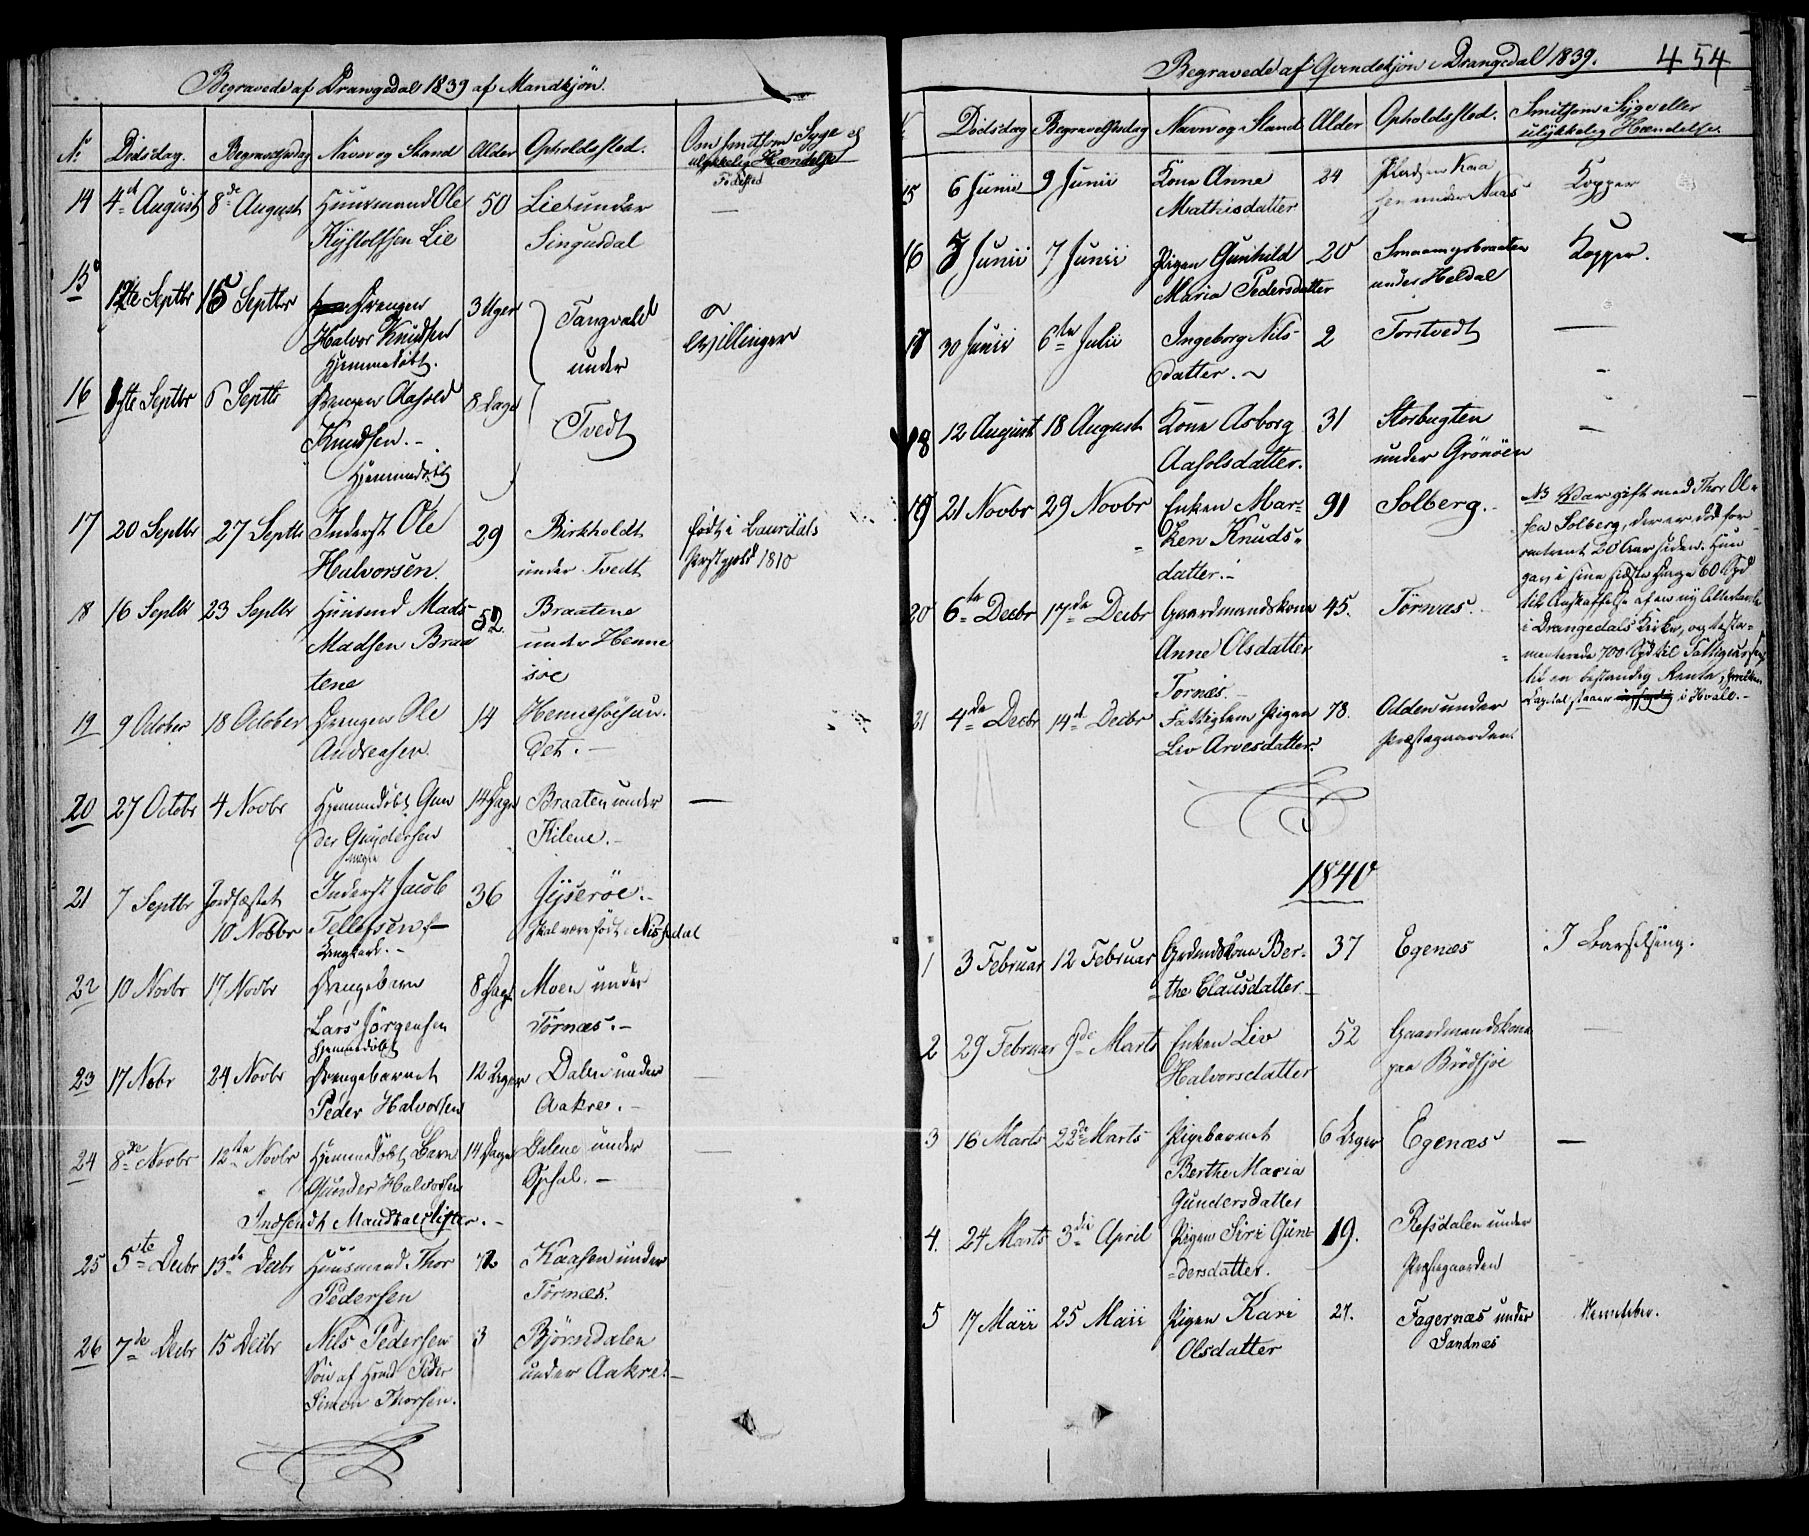 Begravede af Drangedal 1839 af Mandkjön.
No Dödsdag. Begravelsesdag Navn og Stand Alder Opholdssted. Om smitsom Syge el
ulykkelig Hændelse
Fødested
14 4de August 8de August Huusmand Ole 50 Lie under —
Kystolfsen Lie Singusdal
15 12te Septbr 15 Septbr Drengen 3 Uger Tangvald
Halvor Knudsen under Tvillinger
Hjemmedøbt.
16 Septbr 6 Septbr Drengen Aasold 8 Dage Tvedt
Knudsen.-
Hjemmedøbt
17 20 Septbr 27 Septbr Inderst Ole 29 Birkholdt født i Laurdals
Halvorsen. under Tvedt Præstegjeld 1810
18 16 Septbr 23 Septbr Huusmd Mads 52. Braatene
Madsen Braa under Henne
tene söe
19 9 October 18 October Drengen Ole 14 Henneöesun
Andreasen det.-
20 27 Octobr 4 Novbr Hjemmedøbt Gun 14 Dage Braaten under —
der Gundersen Kilene.-
21 7 Septbr Jordfæstet Inderst Jacob 36
10 Novbr Tellefsen Skal være født i Nissedal
22 10 Novbr 17 Novbr Drengebarn 8 Dage Moen under
Lars Jörgensen Törnæs.-
Hjemmedøbt
23 17 Nobr 24 Novbr Drengebarnet 12 Uger Dalen under —
Peder Halvorsen Aakre.-
24 8de Novbr 12te Novbr Hjemmedøbt Barn 14 Dage Dalene under —
Gunder Halvorsen Opsal.-
Indsendt Mandtalslister.-
25 5te Decbr 13de Decbr Huusmand Thor 72 Kaasen under
Pedersen Törnæs.
26 7de Decbr 15 Decbr Nils Pedersen 3 Björndalen
Sön af Hmd Peder under Aakre.-
Simon Thorsen.
Begravede af Qvindekjön i Drangedal 1839. 454
No Dødsdag Begravelsesdag Navn og Stand Alder Opholdssted. Smitsom Syge eller
ulykkelig Hændelse.
15 6 Junii 9 Junii Kone Anne 24 Pladsen Kaa Kopper
Mathisdatter sen under Aas
16 5 Junii 7 Junii Pigen Gunhild 20 Smaamyrbraaten Kopper.
Maria Pedersdatter under Heldal
17 30 Junii 6te Julii Ingeborg Nils- 2 Torstvedt —
datter.
18 12 August 18 August Kone Asborg 31 Storbugten —
Aasolsdatter. under Grönöen
19 21 Novbr 29 Novbr Enken Mar- 91 Solberg.- NB Var gift med Thor Ol-
ken Knuds- sen Solberg, der er död for
datter.- omtrent 20 Aar siden. Hun
gav i sine sidste Dage 60 Spd
til Anskaffelse af en ny Altertavle
i Drangedals Kirke, og testa-
menterede 700 Spd til Fattigvæsen
til en bestandig Rente, hvilken
Capital staaer i Hvale.-
20 6te Decbr 17de Decbr Gaardmandskone 45. Törnæs.
Anne Olsdatter
Tornæs.-
21 4de Decbr 14de Decbr Fattiglem Pigen 78. Odden under
Liv Arvesdatter. Præstegaarden.
1840
1 3 Februar 12 Februar Grdmdskone Ber- 37 Egenæs I Barselseng.
the Clausdatter.
2 29 Februar 9de Marts Enken Liv 52 Gaardmandskone —
Halvorsdatter paa Brödsjöe
3 16 Marts 22de Marts Pigebarnet 6 Uger Egenæs —
Berthe Maria
Gundersdatter
4. 24 Marts 3die April Pigen Siri Gun- 19. Refsdalen under
dersdatter. Præstegaarden
5 17 Maii 25 Maii Pigen Kari 27. Fagernæs under
Olsdatter Sandnæs